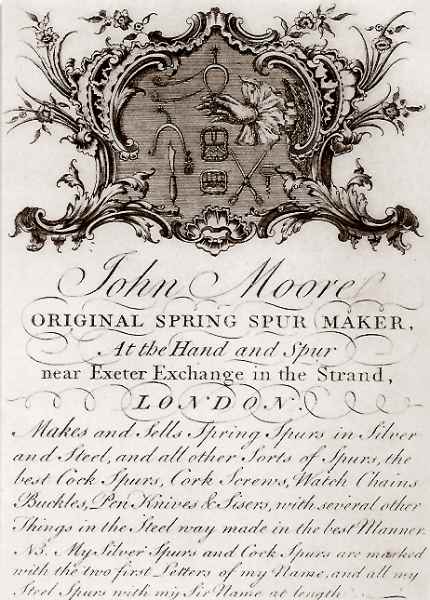 John Moore
ORIGINAL SPRING SPUR MAKER,
At the Hand and Spur
near Exeter Exchange in the Strand,
LONDON.
Makes and Sells Spring Spurs in Silver
and Steel, and all other Sorts of Spurs, the
best Cock Spurs, Cork Screws, Watch Chains
Buckles, Pen Knives & Sisers, with several other
Things in the Steel way made in the best Manner.
NB. My Silver Spurs and Cock Spurs are marked
with the two first Letters of my Name, and all my
Steel Spurs with my Sir Name at length